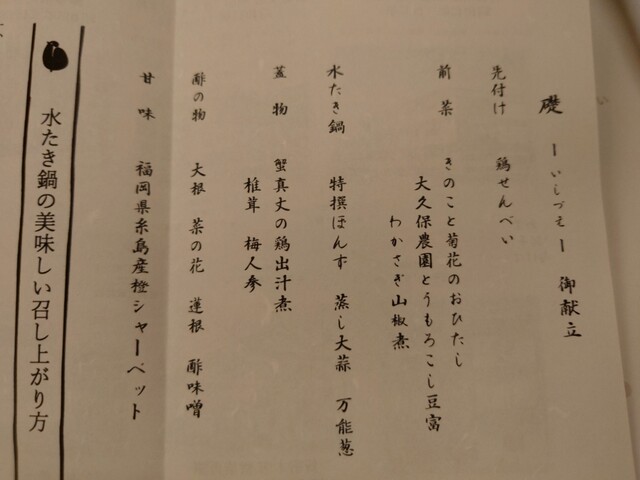 礎 ーいしづえー 御献立
先付け 鶏せんべい
前菜 きのこと菊花のおひたし
大久保農園とうもろこし豆富
わかさぎ山椒煮
水たき鍋 特撰ぽんず 蒸し大蒜 万能葱
蓋物 蟹真丈の鶏出汁煮
椎茸 梅人参
酢の物 大根 菜の花 蓮根 酢味噌
甘味 福岡県糸島産橙シャーベット
水たき鍋の美味しい召し上がり方